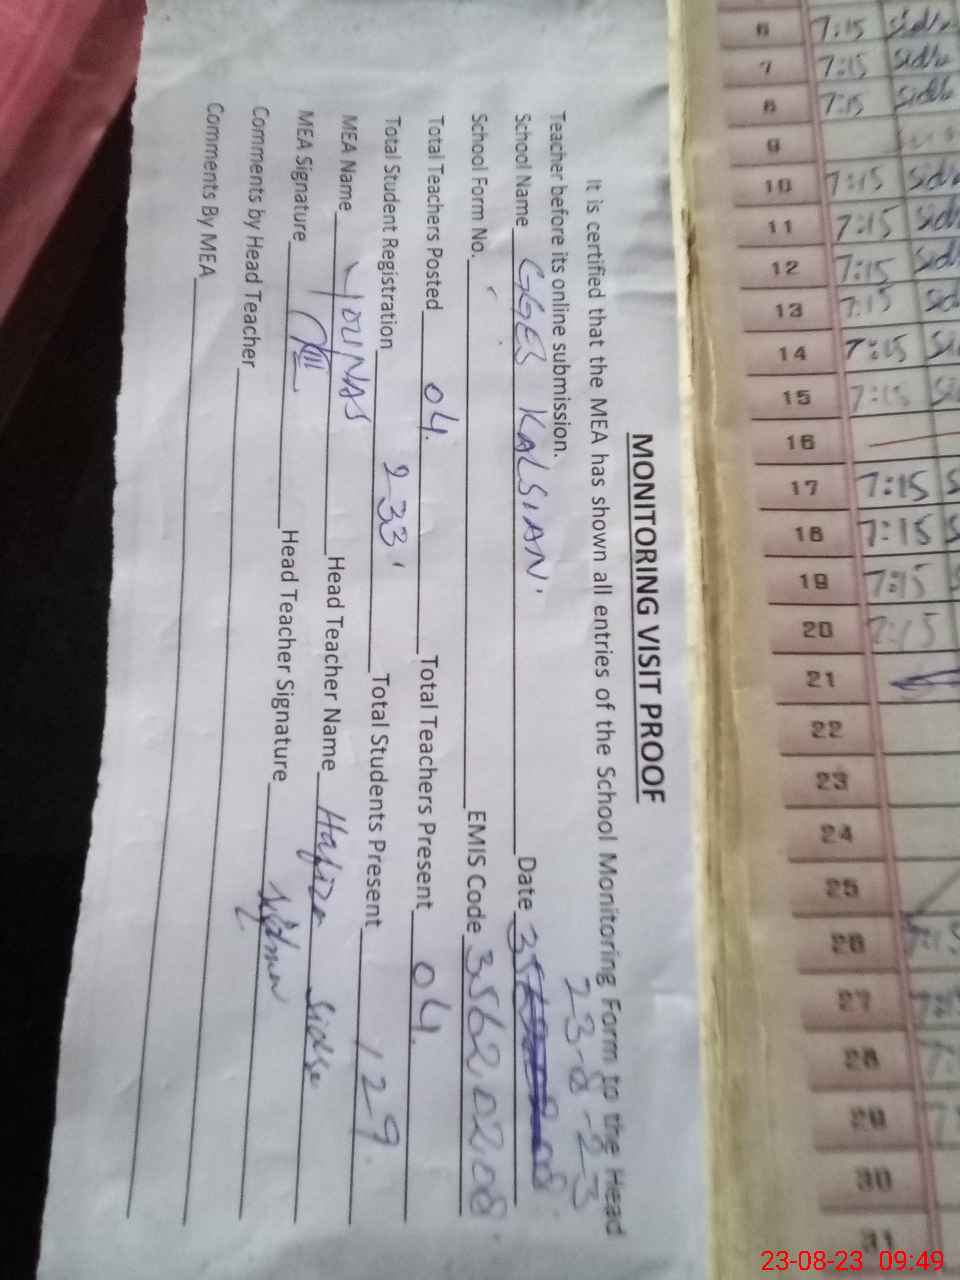 MONITORING VISIT PROOF
It is certified that the MEA has shown all entries of the School Monitoring Form to the Head
Teacher before its online submission.
23-8-23
School Name GGES KALSIAN Date
School Form No. EMIS Code 35620208
Total Teachers Posted 04 Total Teachers Present 04
Total Student Registration 233 Total Students Present 129
MEA Name YOUNAS Head Teacher Name Hafiza
MEA Signature Head Teacher Signature
Comments by Head Teacher
Comments By MEA
6 7:15
7 7:15
8 7:15
9
10 7:15
11 7:15
12 7:15
13 7:15
14 7:15
15 7:15
16
17 7:15
18 7:15
19 7:15
20 7:15
21
22
23
24
25
26
27
28
29
30
31
23-08-23 09:49